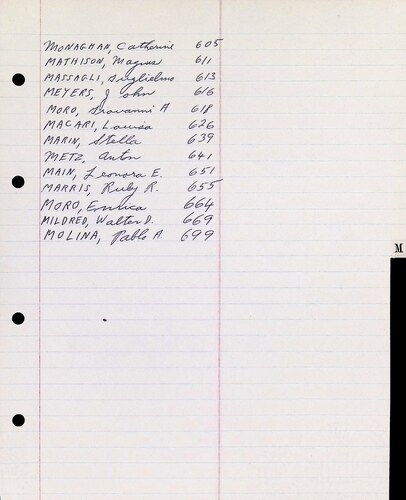 MONAGHAN, Catherine 605
MATHISON, Magnus 611
MASSAGLI, Guglielmo 613
MEYERS, John 616
MORO, Giovanni A 618
MACARI, Louisa 626
MARIN, Stella 639
METZ, Anton 641
MAIN, Leonora E. 651
MARRIS, Ruby R. 655
MORO, Enrica 664
MILDRED, Walter D. 669
MOLINA, Pablo A. 699
M